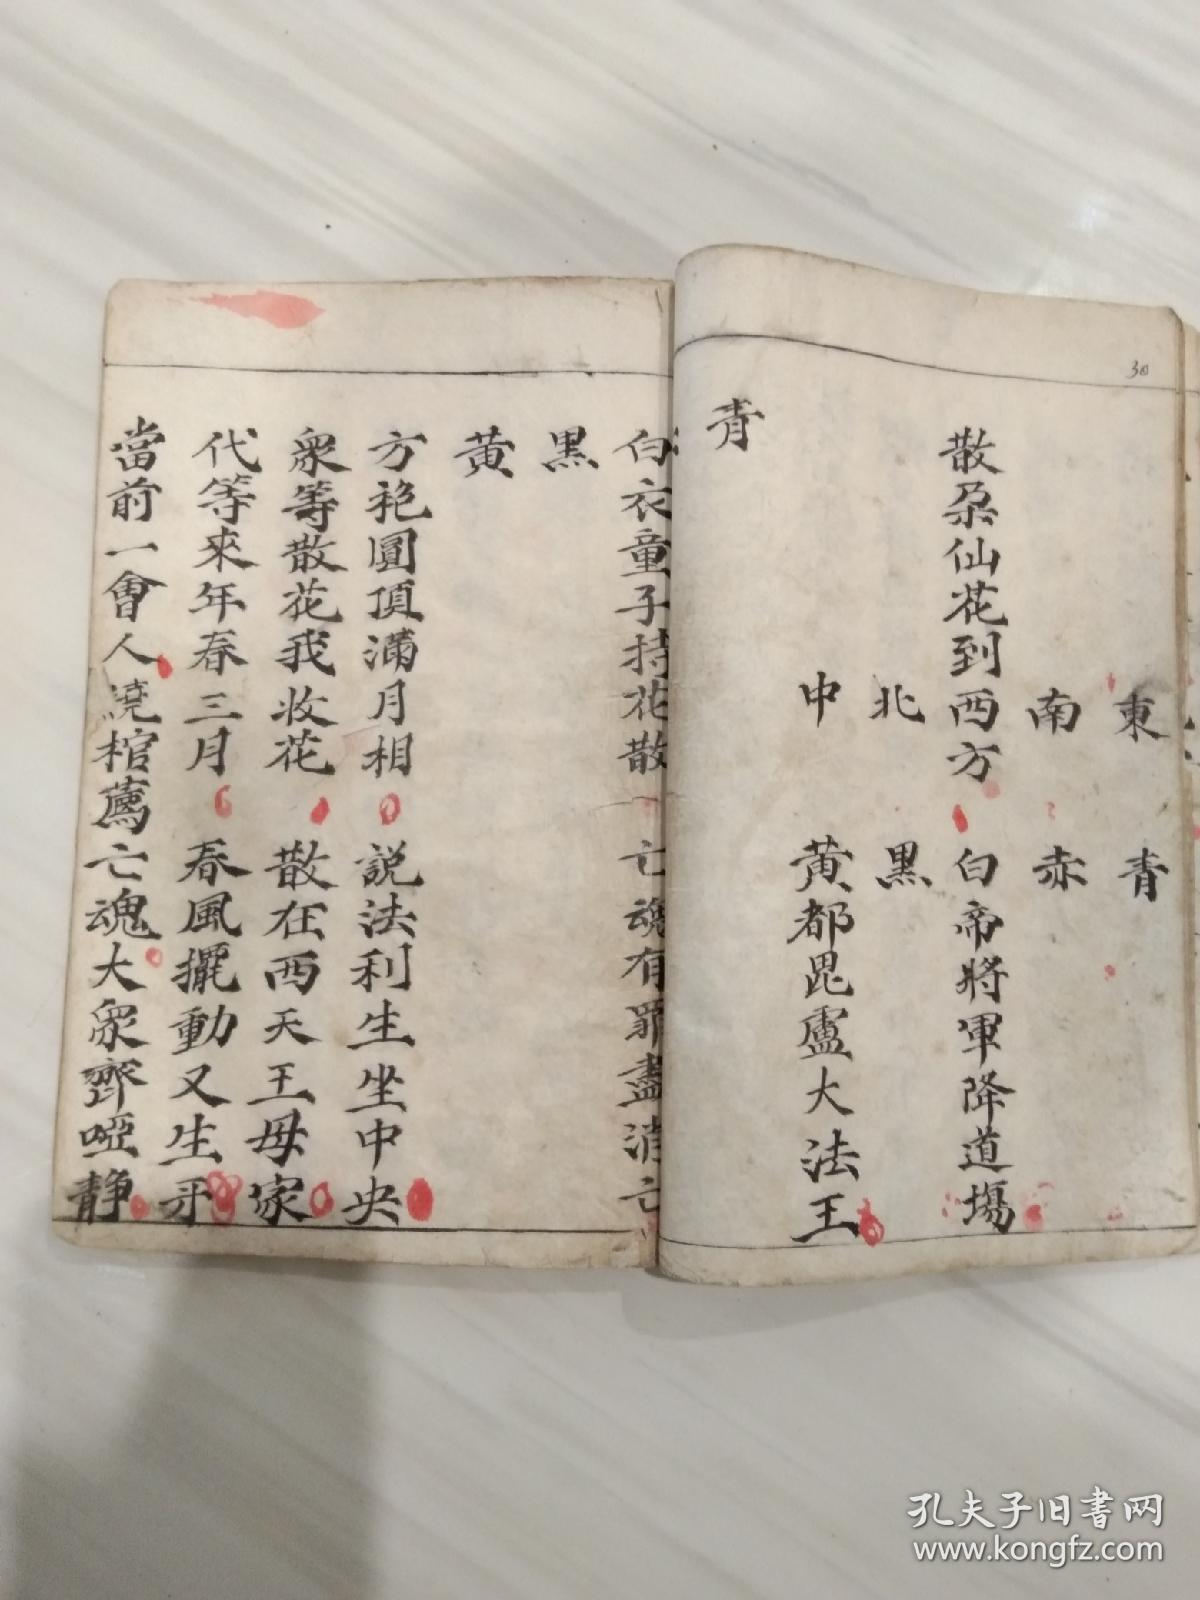 30
東 青
南 赤
散朶仙花到西方 白帝將軍降道場
北 黒
中 黄都毘盧大法王
青
白衣童子持花散 亡魂有罪盡消亡
黒
黄
方袍圓頂滿月相 説法利生坐中央
衆等散花我收花 散在西天王母家
代等來年春三月 春風擺動又生牙
當前一會人 繞棺薦亡魂 大衆齊啞静
孔夫子旧书网
www.kongfz.com